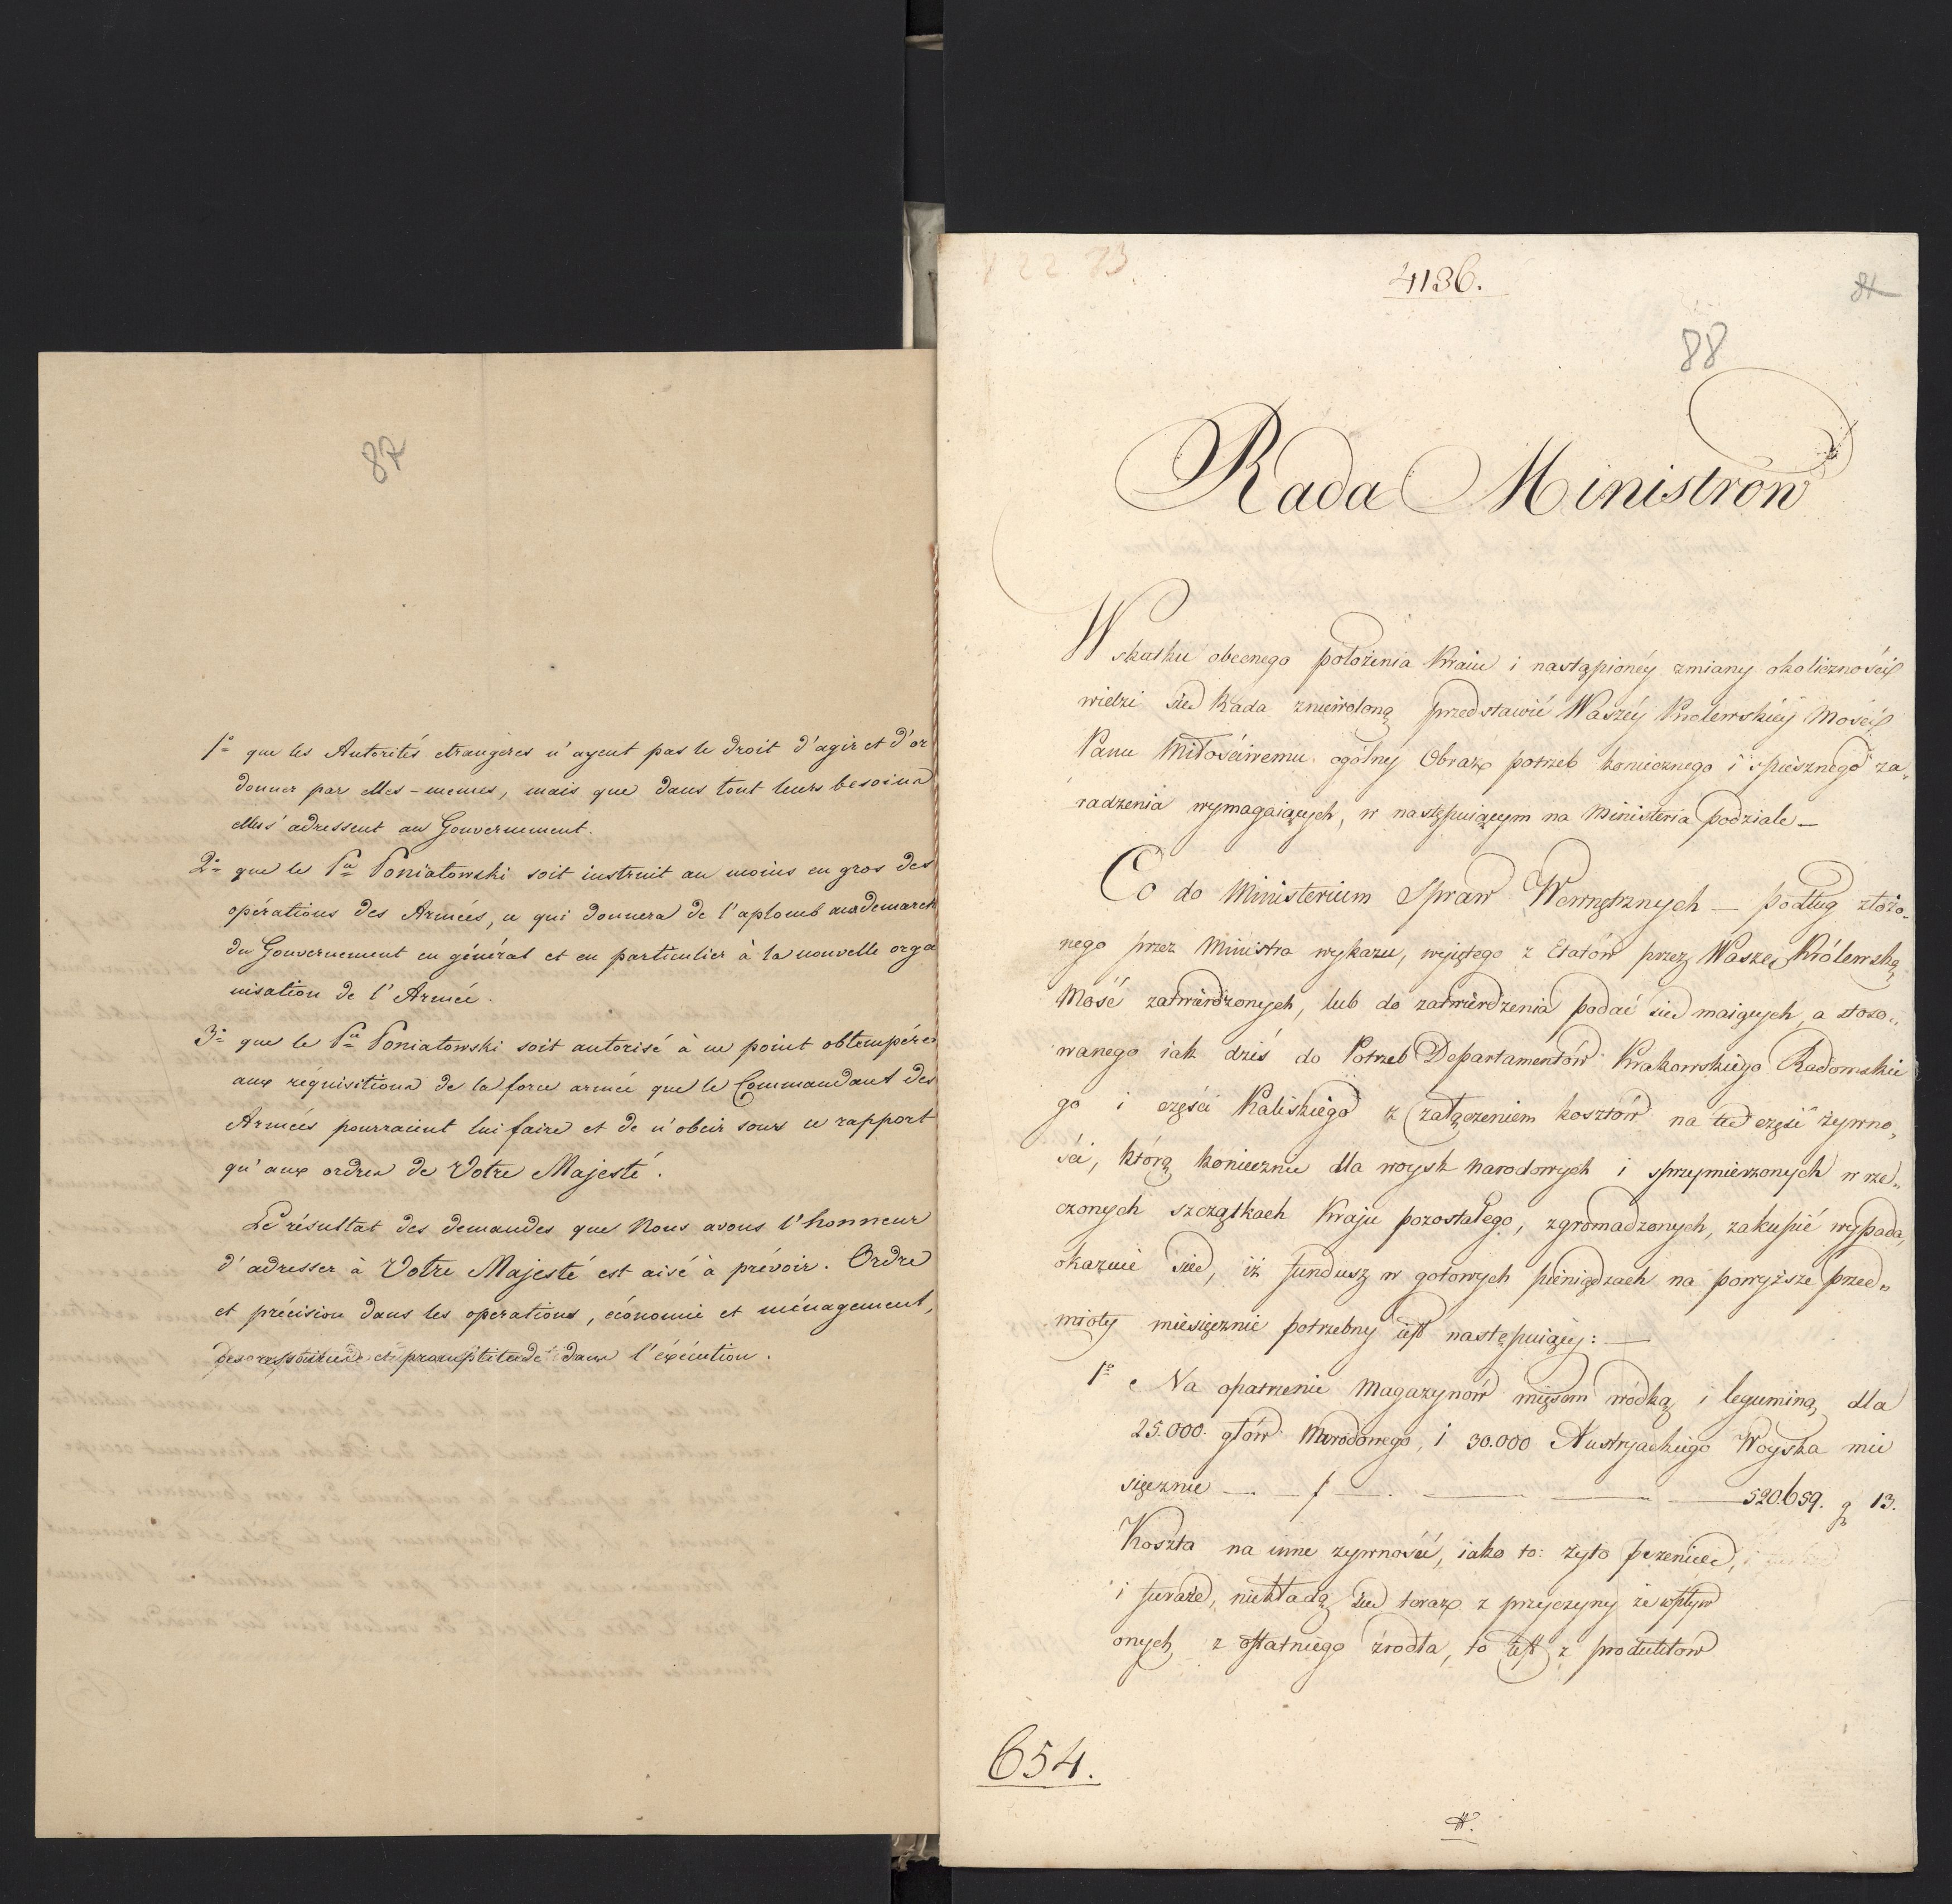 87
1° que les Autorités etrangères n'ayent pas le droit d'agir et d'or
donner par elles-memes, mais que dans tout leurs besoins
elles s'adressent au Gouvernement.
2° que le Pce Poniatowski soit instruit au moins en gros des
opérations des Armées, ce qui donnera de l'aplomb aux demarch
du Gouvernement en général et en particulier à la nouvelle orga
nisation de l'Armée.
3° que le Pce Poniatowski soit autorisé à ne point obtempérer
aux réquisitions de la force armée que le Commandant des
Armées pourraient lui faire et de n'obeir sous ce rapport
qu'aux ordres de Votre Majesté.
Le résultat des demandes que Nous avons l'honneur
d'adresser à Votre Majesté est aisé à prévoir. Ordre
et précision dans les operations, économie et ménagement,
et promptitude dans l'éxécution.
22. 83
4136.
84
88
Rada Ministrów
W skutku obecnego położenia Kraiu i nastąpionéy zmiany okoliczności
widzi się Rada zniewoloną przedstawić Waszéy Krolewskiéy Mości
Panu Miłościwemu ogólny Obraz potrzeb koniecznego i spiesznego za„
radzenia wymagaiących, w następuiącym na Ministeria podziale —
Co do Ministerium Spraw Wewnętrznych — podług złożo„
nego przez Ministra wykazu, wyiętego z Etatów przez Waszę Królewską
Mość zatwierdzonych, lub do zatwierdzenia podać się maiących, a stoso„
wanego iak dziś do Potrzeb Departamentów Krakowskiego Radomskie
go i części Kaliskiego z załączeniem kosztów na tę część żywno„
ści, którą koniecznie dla woysk Narodowych i sprzymierzonych w rze„
czonych szczątkach Kraju pozostałego, zgromadzonych, zakupić wypada,
okazuie się, iż fundusz w gotowych pieniądzach na powyższe przed„
mioty miesięcznie potrzebny iest następuiący: —
1° Na opatrzenie Magazynów mięsem wódką i leguminą dla
25.000. głów Narodowego, i 30.000 Austryackiego Woyska mie
sięcznie — — f — — — — 520.659. g 13.
Koszta na inne zywność, iako to: żyto pszenicę,
i furaże, niekładą się teraz z przyczyny że wpływ
onych z ostatniego źrodła, to iest z produktów
654.